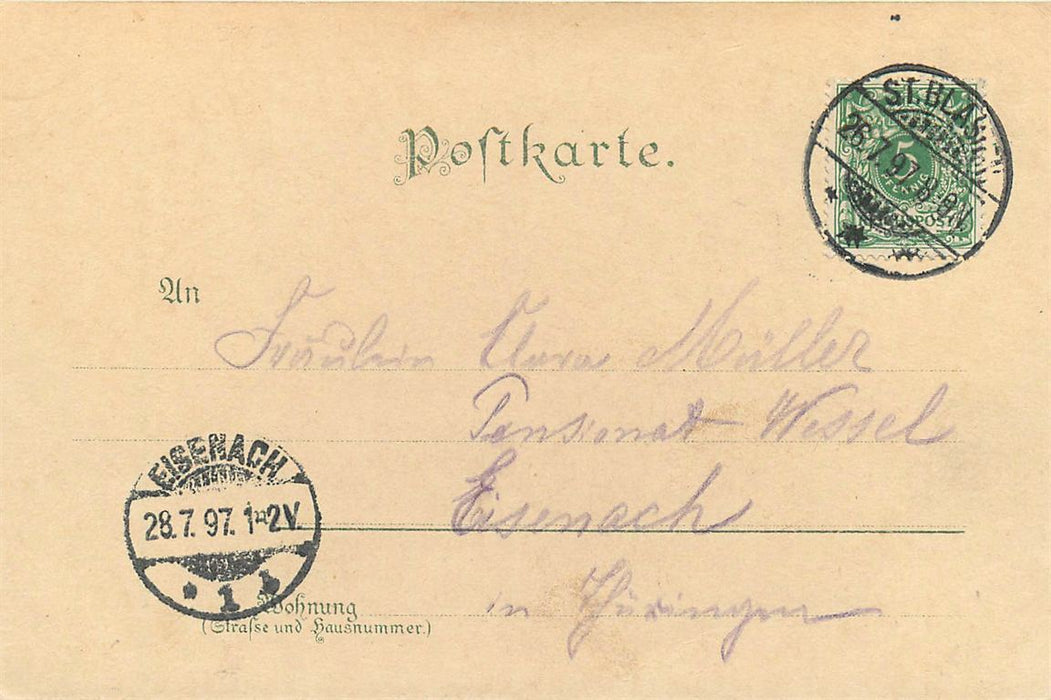 Postkarte.
ST. BLASIEN
26.7.97. 8-9V.
5
REICHSPOST
An
Fräulein Clara Müller
Pensionat Wessel
Eisenach
in Thüringen
EISENACH
28.7.97. 1-2V.
* 1 b
Wohnung
(Straße und Hausnummer.)